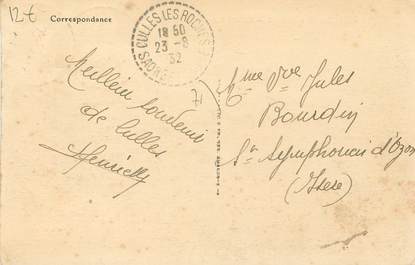 12€
Correspondance
CULLES LES ROCHES
18 50
23 - 8
32
71
Meilleur souvenir
de Culles
Mme Vve Jules
Bourdin
St Symphorien d'Ozon
(Isère)